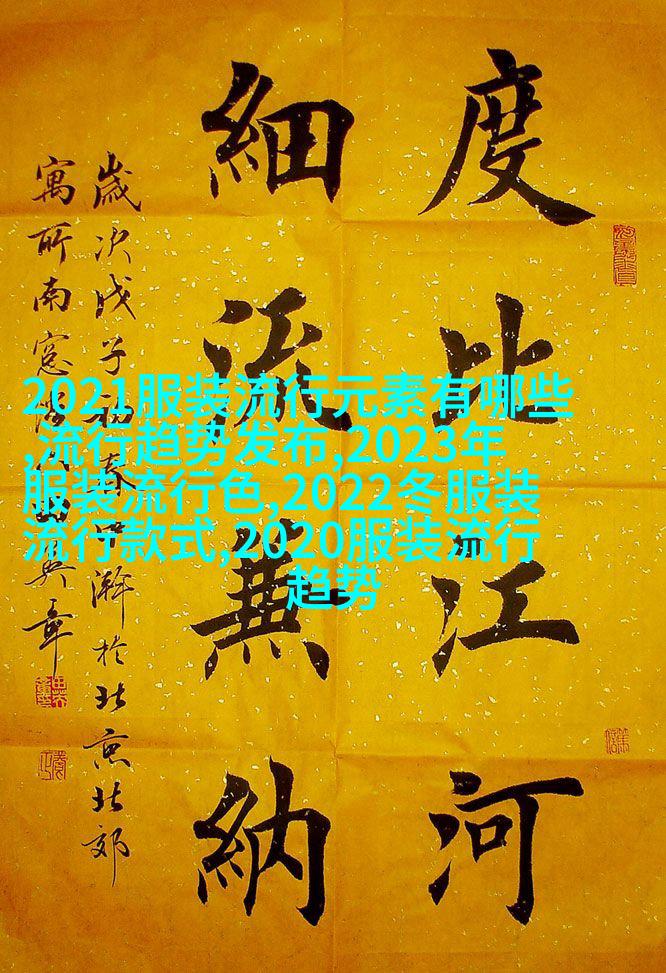 度比江河
細流兼納
歲次戊子初春中澣於北京北郊
寓所南窓英章
2021服装流行元素有哪些
,流行趋势发布,2023年
服装流行色,2022冬服装
流行款式,2020服装流行
趋势